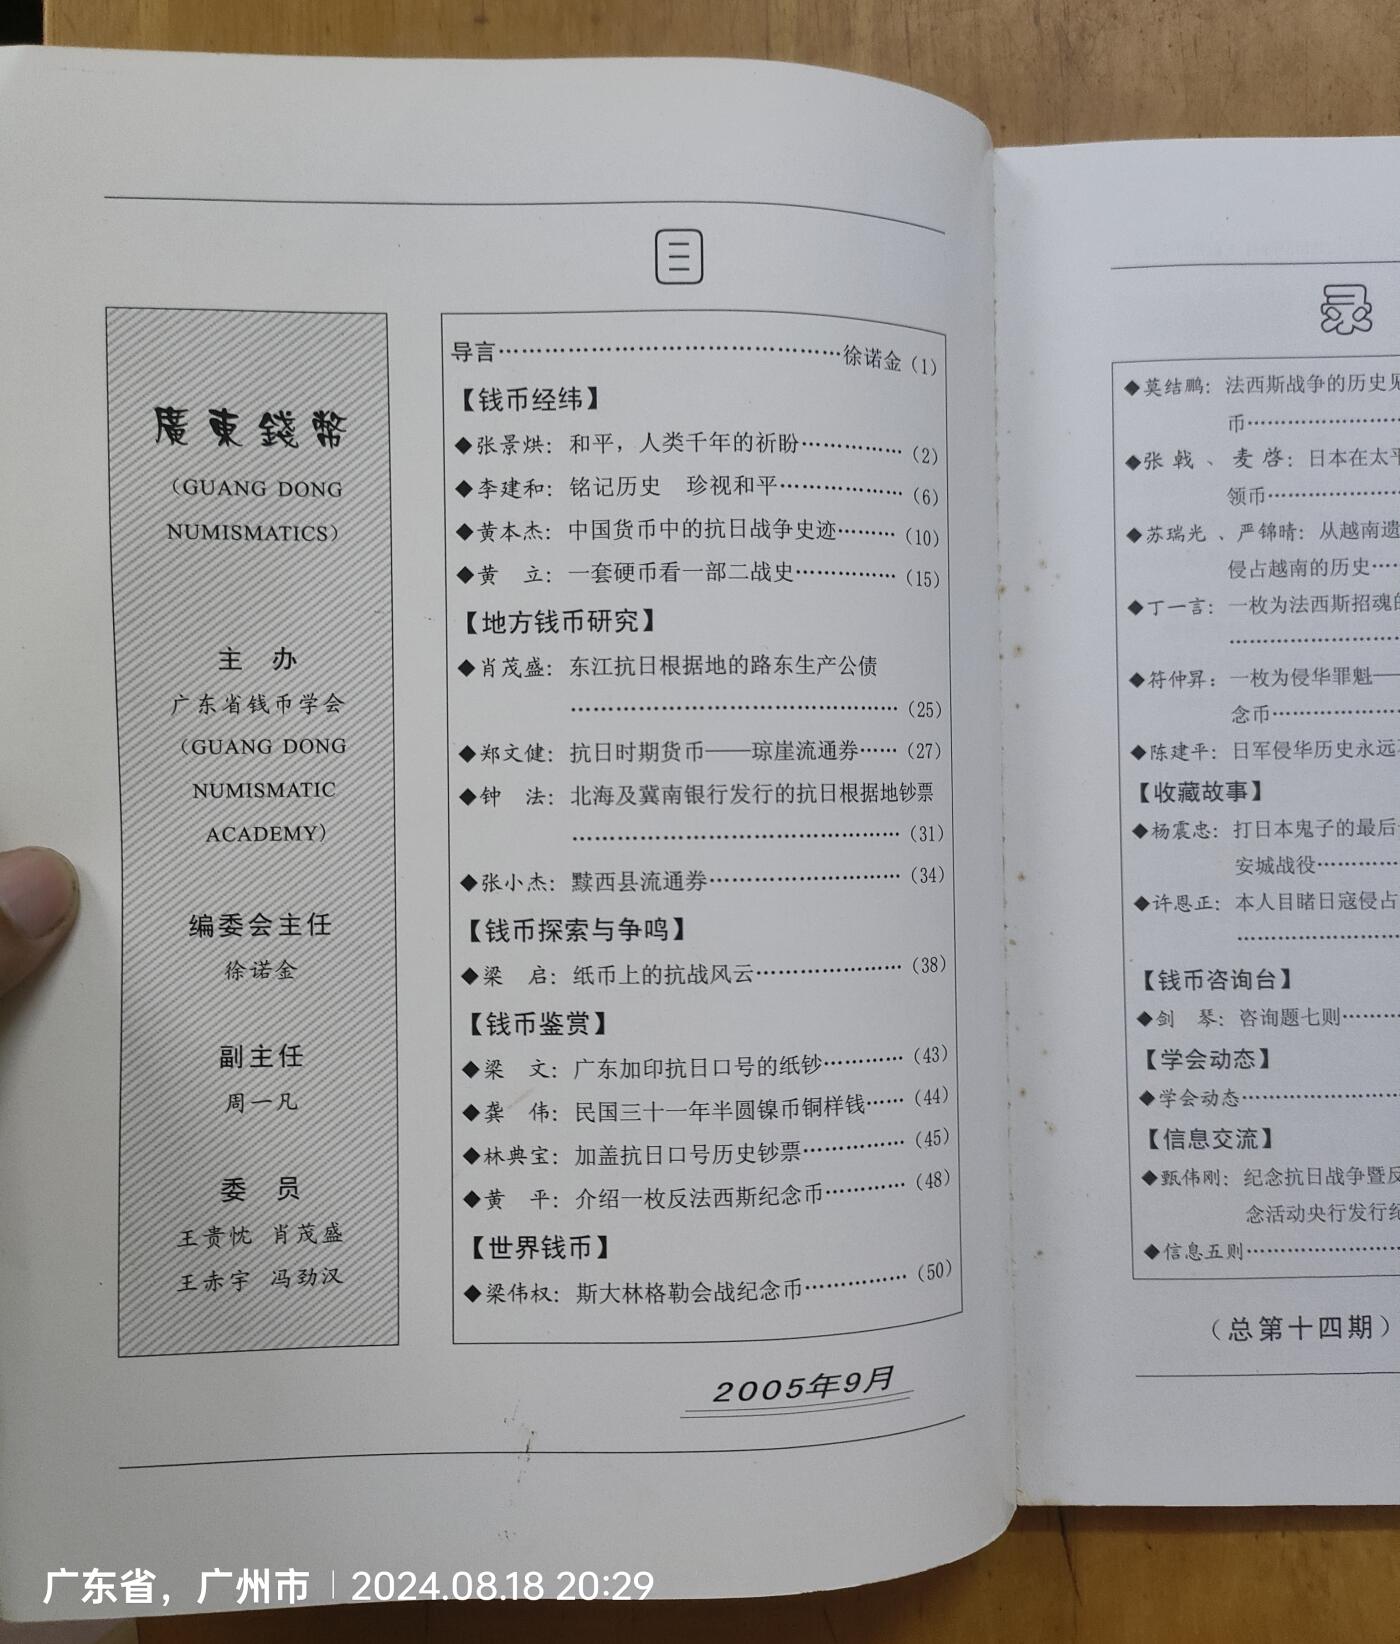 目
廣東錢幣
(GUANG DONG
NUMISMATICS)
主 办
广东省钱币学会
(GUANG DONG
NUMISMATIC
ACADEMY)
编委会主任
徐诺金
副主任
周一凡
委 员
王贵忱 肖茂盛
王赤宇 冯劲汉
导言……………………………………徐诺金(1)
【钱币经纬】
◆张景烘：和平，人类千年的祈盼…………(2)
◆李建和：铭记历史 珍视和平……………(6)
◆黄本杰：中国货币中的抗日战争史迹………(10)
◆黄 立：一套硬币看一部二战史…………(15)
【地方钱币研究】
◆肖茂盛：东江抗日根据地的路东生产公债
……………………………………(25)
◆郑文健：抗日时期货币——琼崖流通券……(27)
◆钟 法：北海及冀南银行发行的抗日根据地钞票
……………………………………(31)
◆张小杰：黩西县流通券……………………(34)
【钱币探索与争鸣】
◆梁 启：纸币上的抗战风云………………(38)
【钱币鉴赏】
◆梁 文：广东加印抗日口号的纸钞………(43)
◆龚 伟：民国三十一年半圆镍币铜样钱……(44)
◆林典宝：加盖抗日口号历史钞票…………(45)
◆黄 平：介绍一枚反法西斯纪念币………(48)
【世界钱币】
◆梁伟权：斯大林格勒会战纪念币…………(50)
2005年9月
录
◆莫结鹏：法西斯战争的历史见
币………………
◆张 戟、麦 啓：日本在太平
领币……………
◆苏瑞光、严锦晴：从越南遗
侵占越南的历史……
◆丁一言：一枚为法西斯招魂的
…………………
◆符仲昇：一枚为侵华罪魁—
念币……………
◆陈建平：日军侵华历史永远
【收藏故事】
◆杨震忠：打日本鬼子的最后
安城战役…………
◆许恩正：本人目睹日寇侵占
…………………
【钱币咨询台】
◆剑 琴：咨询题七则……
【学会动态】
◆学会动态…………………
【信息交流】
◆甄伟刚：纪念抗日战争暨反
念活动央行发行纪
◆信息五则…………………
(总第十四期)
广东省，广州市 | 2024.08.18 20:29